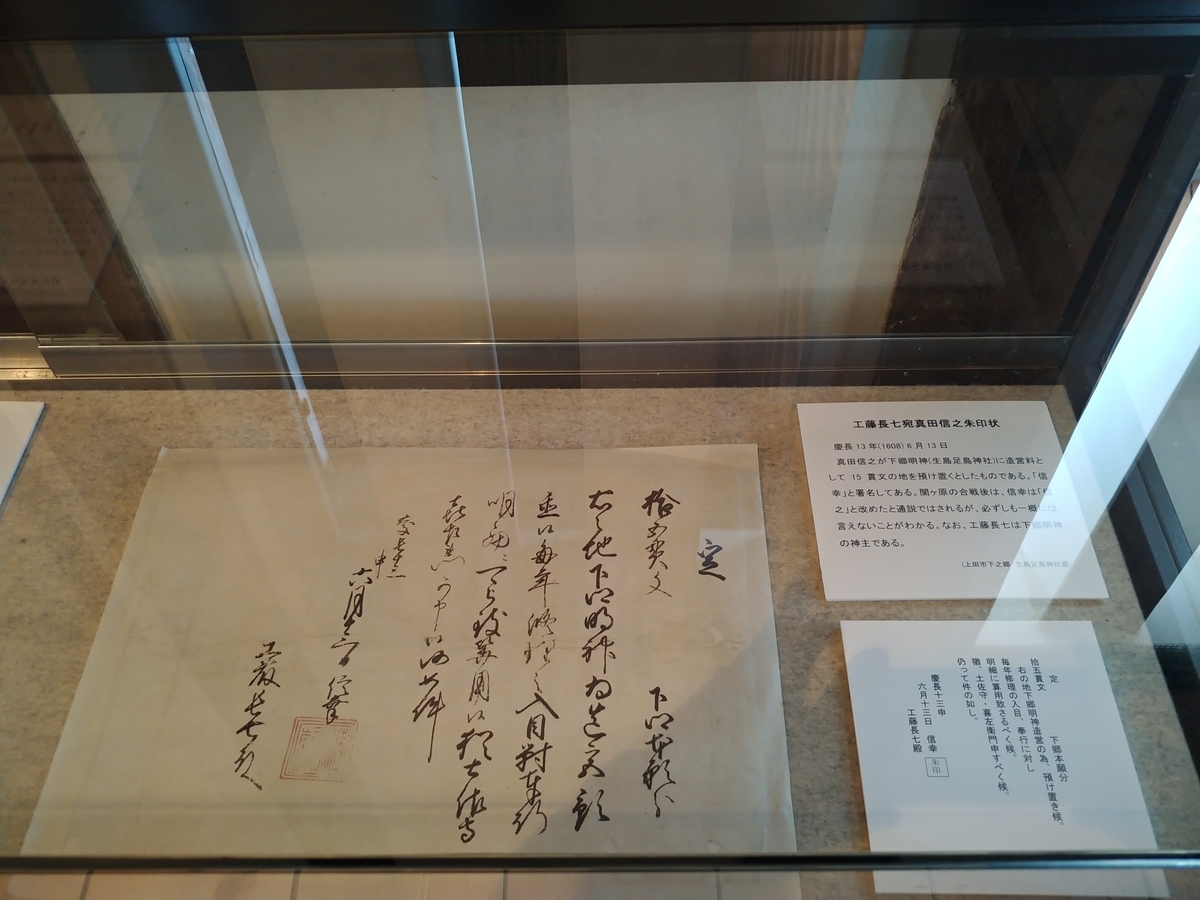 工藤長七宛真田信之朱印状
慶長 13 年(1608) 6 月 13 日
真田信之が下郷明神(生島足島神社)に造営料と
して 15 貫文の地を預け置くとしたものである。「信
幸」と署名してある。関ヶ原の合戦後は、信幸は「信
之」と改めたと通説ではされるが、必ずしも一概には
言えないことがわかる。なお、工藤長七は下郷明神
の神主である。
(上田市下之郷 生島足島神社蔵)
定
拾五貫文 下郷本願分
右の地下郷明神造営の為、預け置き候。
毎年修理の入目、奉行に対し
明細に算用致さるべく候。
猶、土佐守・喜左衛門申すべく候。
仍って件の如し。
慶長十三申
六月十三日 信幸 朱印
工藤長七殿
定
拾五貫文
右之地下郷明神為造宮預
六月十三日 信幸
工藤長七殿